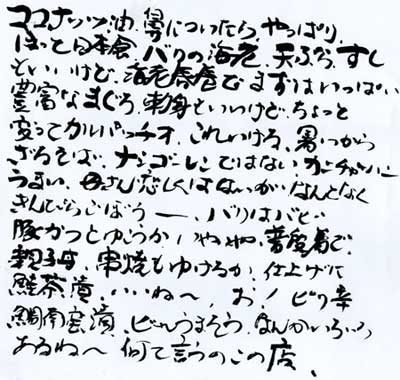 ココナッツ油、鼻についたら、やっぱり
ほっと日本食、バリの海老、天ぷら、すし
もいいけど、海老唐唐でまずはいっぱい
豊富なまぐろ、刺身もいいけど、ちょっと
変ってカルパッチオ、これいける、暑いから
ざるそば、ナシゴーレンではない、カニチャーハン
うまい、母さん恋しくはないが、なんとなく
きんぴらごぼう ー、バリはバビ
豚かつとゆうか いやいや、生姜焼で、
親子丼、串焼もゆけるか、仕上げに
鮭茶漬、いいね〜、お！ピリ辛
鯛茶漬、どれもうまそう、なんかいろいろ
あるね〜 何て言うのこの店、